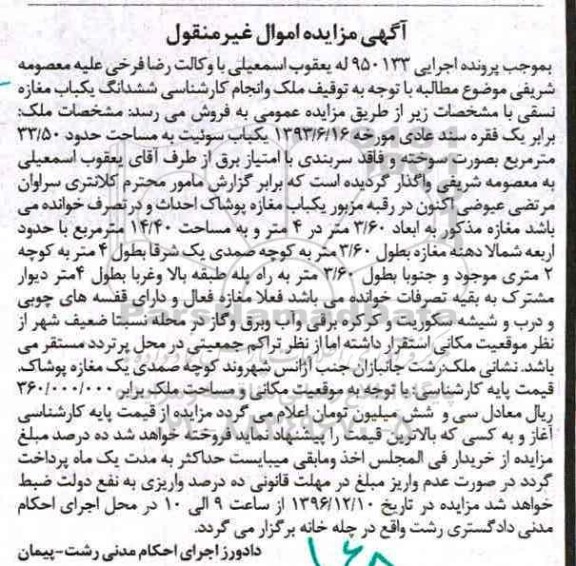 آگهی مزایده اموال غیر منقول
بموجب پرونده اجرایی ۹۵۰۱۳۳ له یعقوب اسمعیلی با وکالت رضا فرخی علیه معصومه
شریفی موضوع مطالبه با توجه به توقیف ملک وانجام کارشناسی ششدانگ یکباب مغازه
نسقی با مشخصات زیر از طریق مزایده عمومی به فروش می رسد: مشخصات ملک:
برابر یک فقره سند عادی مورخه ۱۳۹۳/۶/۱۶ یکباب سوئیت به مساحت حدود ۳۳/۵۰
مترمربع بصورت سوخته و فاقد سربندی با امتیاز برق از طرف آقای یعقوب اسمعیلی
به معصومه شریفی واگذار گردیده است که برابر گزارش مامور محترم کلانتری سراوان
مرتضی عیوضی اکنون در رقبه مزبور یکباب مغازه پوشاک احداث و در تصرف خوانده می
باشد مغازه مذکور به ابعاد ۳/۶۰ متر در ۴ متر و به مساحت ۱۴/۴۰ مترمربع با حدود
اربعه شمالا دهنه مغازه بطول ۳/۶۰ متر به کوچه صمدی یک شرقا بطول ۴ متر به کوچه
۲ متری موجود و جنوبا بطول ۳/۶۰ متر به راه پله طبقه بالا وغربا بطول ۴متر دیوار
مشترک به بقیه تصرفات خوانده می باشد فعلا مغازه فعال و دارای قفسه های چوبی
و درب و شیشه سکوریت و کرکره برقی واب وبرق وگاز در محله نسبتا ضعیف شهر از
نظر موقعیت مکانی استقرار داشته اما از نظر تراکم جمعیتی در محل پر تردد مستقر می
باشد. نشانی ملک:رشت جانبازان جنب آژانس شهروند کوچه صمدی یک مغازه پوشاک.
قیمت پایه کارشناسی: با توجه به موقعیت مکانی و مساحت ملک برابر ۳۶۰/۰۰۰/۰۰۰
ریال معادل سی و شش میلیون تومان اعلام می گردد مزایده از قیمت پایه کارشناسی
آغاز و به کسی که بالاترین قیمت را پیشنهاد نماید فروخته خواهد شد ده درصد مبلغ
مزایده از خریدار فی المجلس اخذ ومابقی میبایست حداکثر به مدت یک ماه پرداخت
گردد در صورت عدم واریز مبلغ در مهلت قانونی ده درصد واریزی به نفع دولت ضبط
خواهد شد مزایده در تاریخ ۱۳۹۶/۱۲/۱۰ از ساعت ۹ الی ۱۰ در محل اجرای احکام
مدنی دادگستری رشت واقع در چله خانه برگزار می گردد.
دادورز اجرای احکام مدنی رشت-پیمان